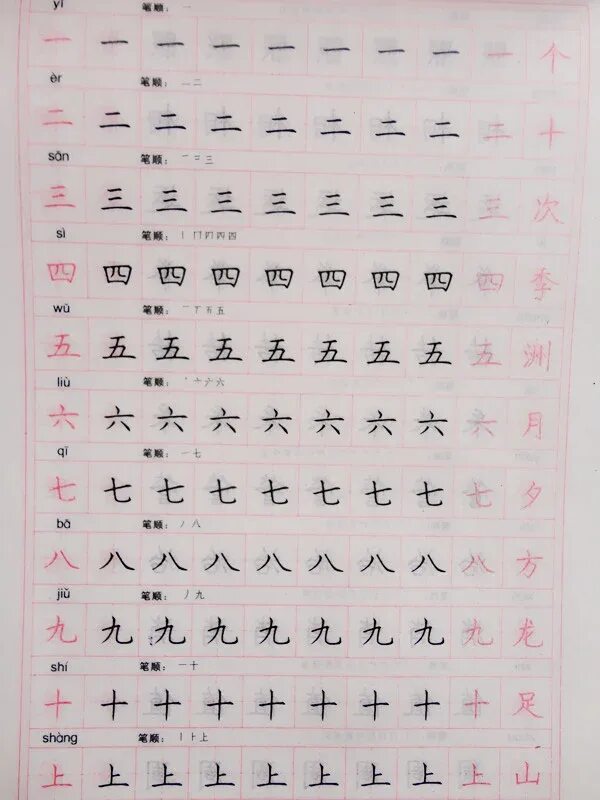 yī 笔顺： 一
一 一 一 一 一 一 一 一 一 个
èr 笔顺： 一 二
二 二 二 二 二 二 二 二 二 十
sān 笔顺： 一 二 三
三 三 三 三 三 三 三 三 三 次
sì 笔顺： 丨 冂 四 四 四
四 四 四 四 四 四 四 四 四 季
wǔ 笔顺： 一 丅 五 五
五 五 五 五 五 五 五 五 五 洲
liù 笔顺： 丶 亠 六 六
六 六 六 六 六 六 六 六 六 月
qī 笔顺： 一 七
七 七 七 七 七 七 七 七 七 夕
bā 笔顺： 丿 八
八 八 八 八 八 八 八 八 八 方
jiǔ 笔顺： 丿 九
九 九 九 九 九 九 九 九 九 龙
shí 笔顺： 一 十
十 十 十 十 十 十 十 十 十 足
shàng 笔顺： 丨 卜 上
上 上 上 上 上 上 上 上 上 山